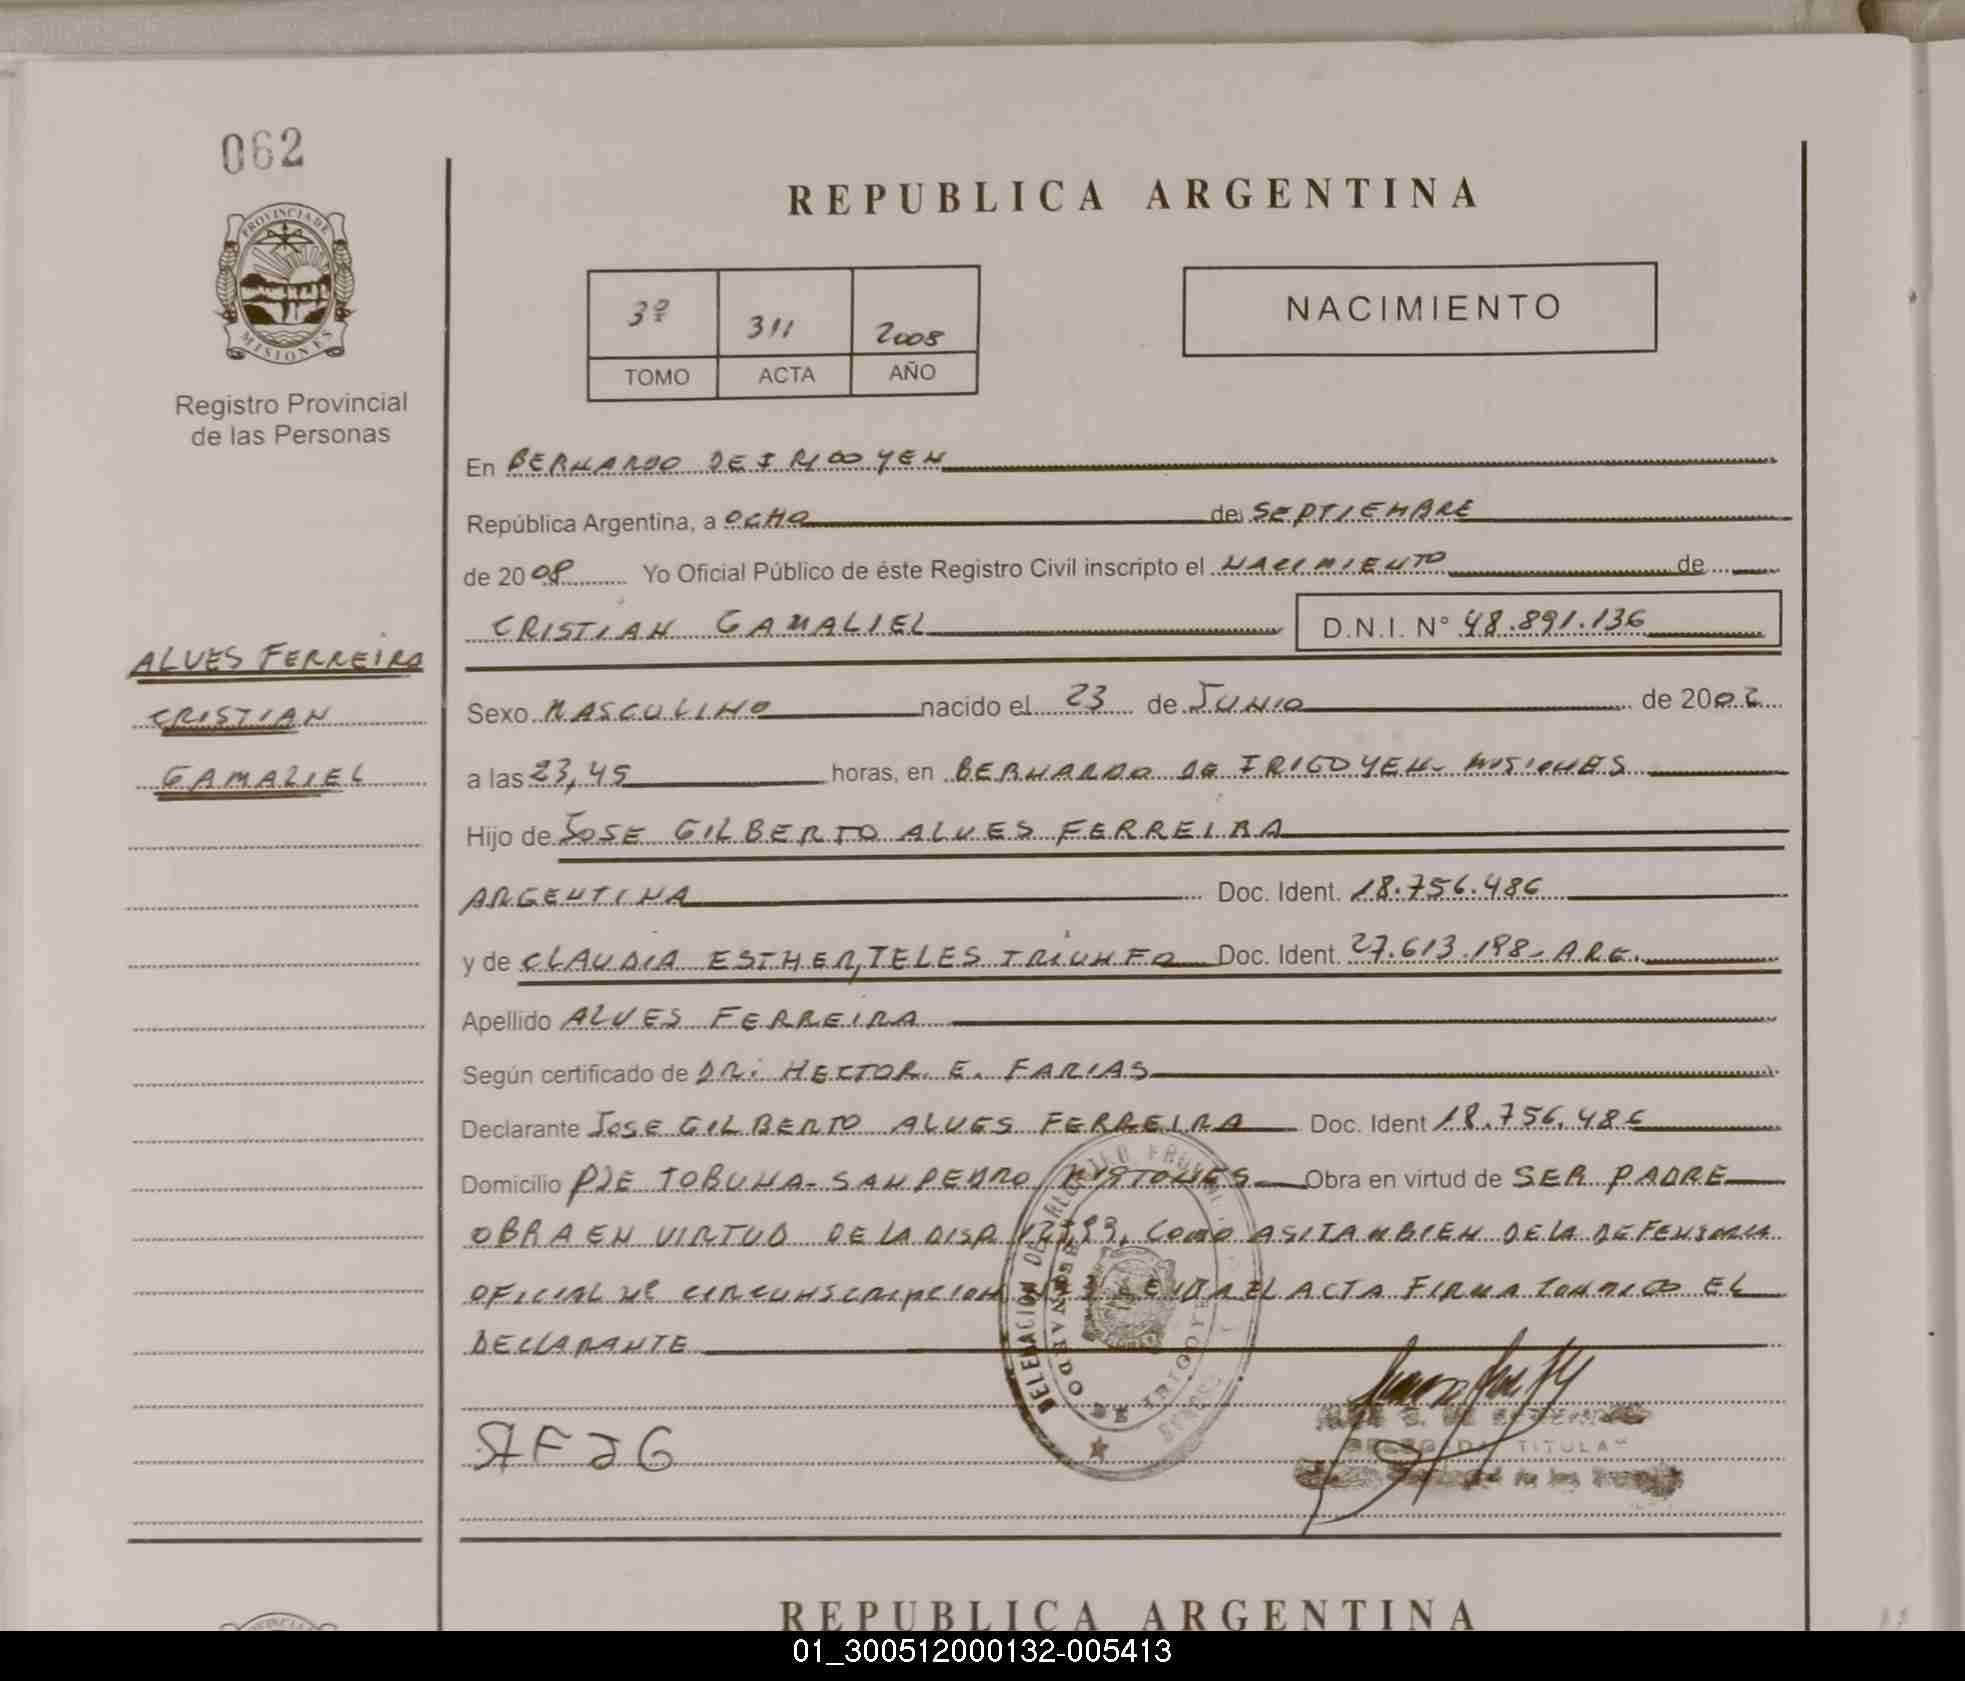 062
REPUBLICA ARGENTINA
PROVINCIA DE
MISIONES
Registro Provincial
de las Personas
3º 311 2008
TOMO ACTA AÑO
NACIMIENTO
En BERNARDO DE IRIGOYEN
República Argentina, a OCHO de SEPTIEMBRE
de 2008 Yo Oficial Público de éste Registro Civil inscripto el NACIMIENTO de
CRISTIAN GAMALIEL D.N.I. N° 48.891.136
ALVES FERREIRA
CRISTIAN
GAMALIEL
Sexo MASCULINO nacido el 23 de JUNIO de 200
a las 23,45 horas, en BERNARDO DE IRIGOYEN- MISIONES
Hijo de JOSE GILBERTO ALVES FERREIRA
ARGENTINA Doc. Ident. 18.756.486
y de CLAUDIA ESTHER, TELES TRIUNFO Doc. Ident. 27.613.198- ARG.
Apellido ALVES FERREIRA
Según certificado de DR: HECTOR E. FARIAS
Declarante JOSE GILBERTO ALVES FERREIRA Doc. Ident 18.756.486
Domicilio PJE TOBUNA- SAN PEDRO MISIONES Obra en virtud de SER PADRE
OBRA EN VIRTUD DE LA DISP. COMO ASI TAMBIEN DE LA DEFENSORIA
OFICIAL Nº CIRCUNSCRIPCION EL ACTA FIRMA CONMIGO EL
DECLARANTE
BERNARDO DE IRIGOYEN
AFJG
TITULAR
de las
REPUBLICA ARGENTINA
01_300512000132-005413